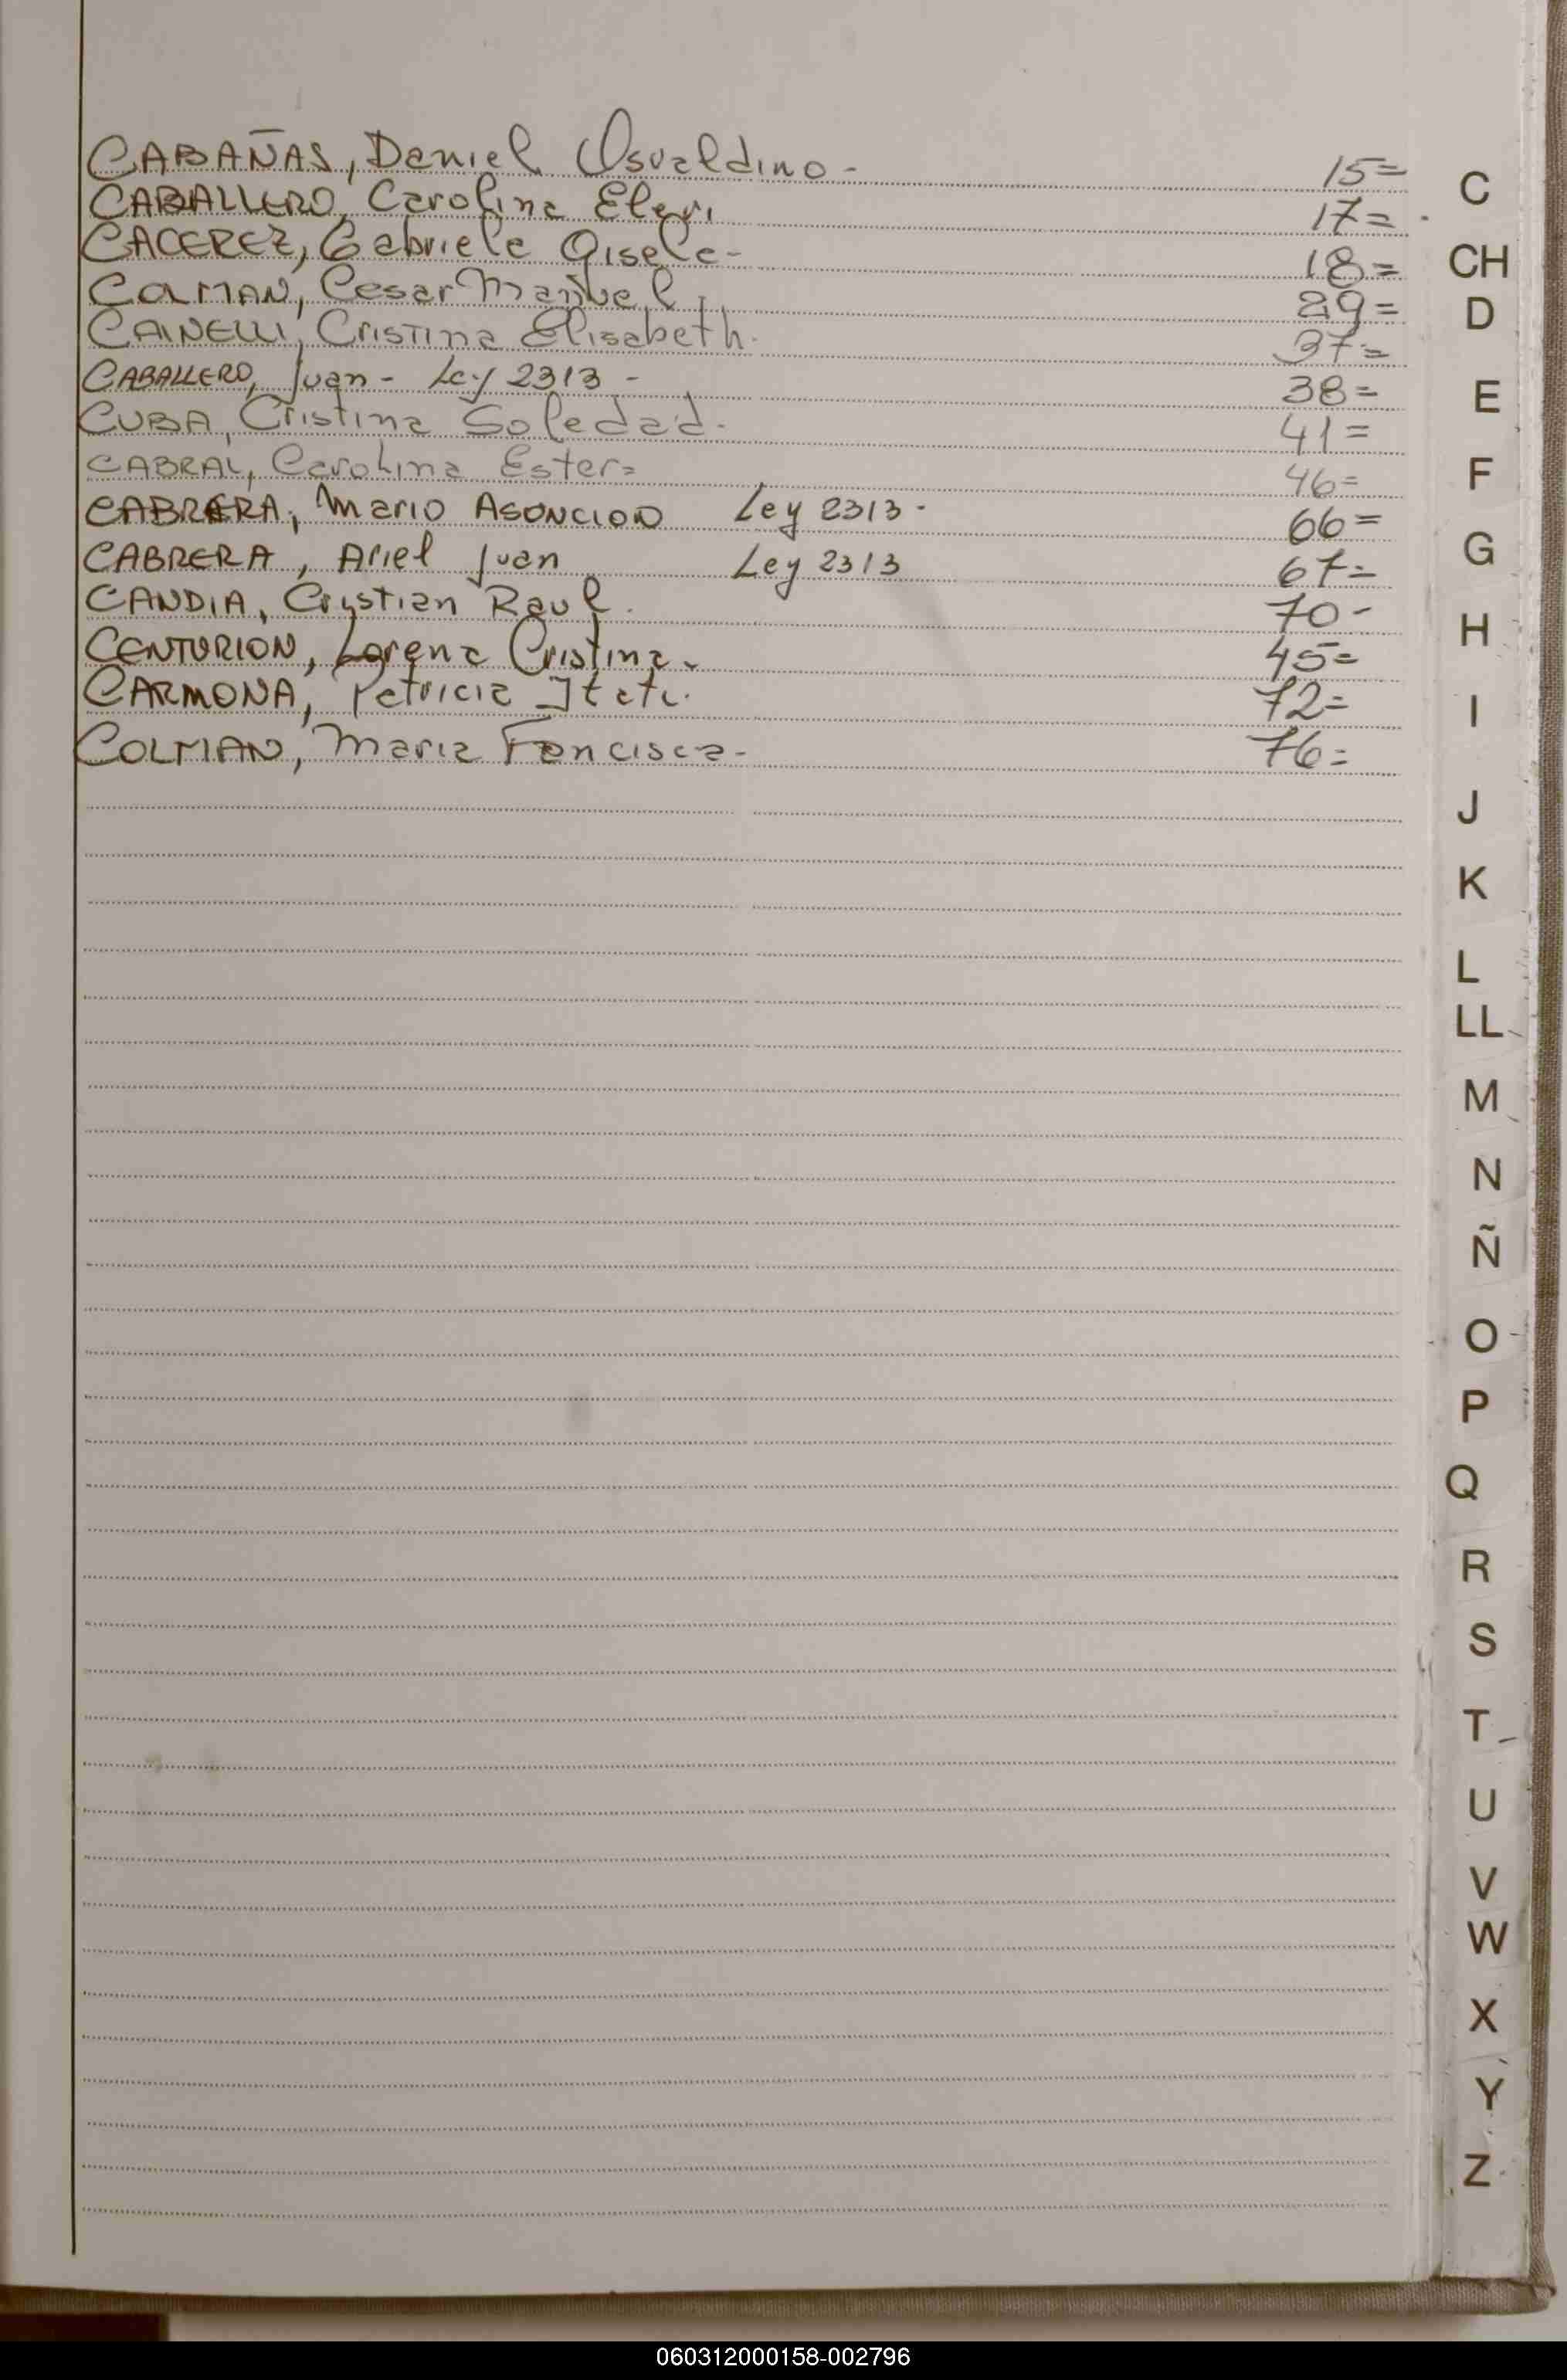 CABAÑAS, Daniel Osvaldino - 15=
CABALLERO, Carolina Eleri 17=
CACEREZ, Gabriela Gisela - 18=
COLMAN, Cesar Manuel - 29=
CAINELLI, Cristina Elisabeth. 37=
CABALLERO, Juan - Ley 2313 - 38=
CUBA, Cristina Soledad. 41=
CABRAL, Carolina Ester= 46=
CABRERA, Mario ASONCION Ley 2313 - 66=
CABRERA, Ariel Juan Ley 2313 67=
CANDIA, Crystian Raul. 70-
CENTURION, Lorena Cristina. 45=
CARMONA, Patricia Itati. 72=
COLMAN, Maria Fancisca - 76=
C
CH
D
E
F
G
H
I
J
K
L
LL
M
N
Ñ
O
P
Q
R
S
T
U
V
W
X
Y
Z
060312000158-002796